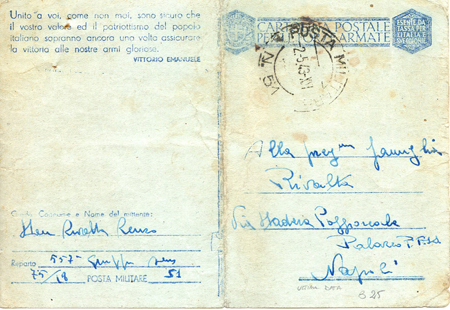 Unito a voi, come non mai, sono sicuro che
il vostro valore ed il patriottismo del popolo
italiano sapranno ancora una volta assicurare
la vittoria alle nostre armi gloriose.
VITTORIO EMANUELE
CARTOLINA POSTALE
PER LE FORZE ARMATE
ESENTE DA
TASSA PER
L'ITALIA E
POSTA MILITARE
2.5.43.XXI
N. 51
Alla preg.ma famiglia
Rivalta
Via Poggioreale
Palazzo
Napoli
Grado, Cognome e Nome del mittente:
Rivalta Renzo
Reparto 557
75/18 POSTA MILITARE 51